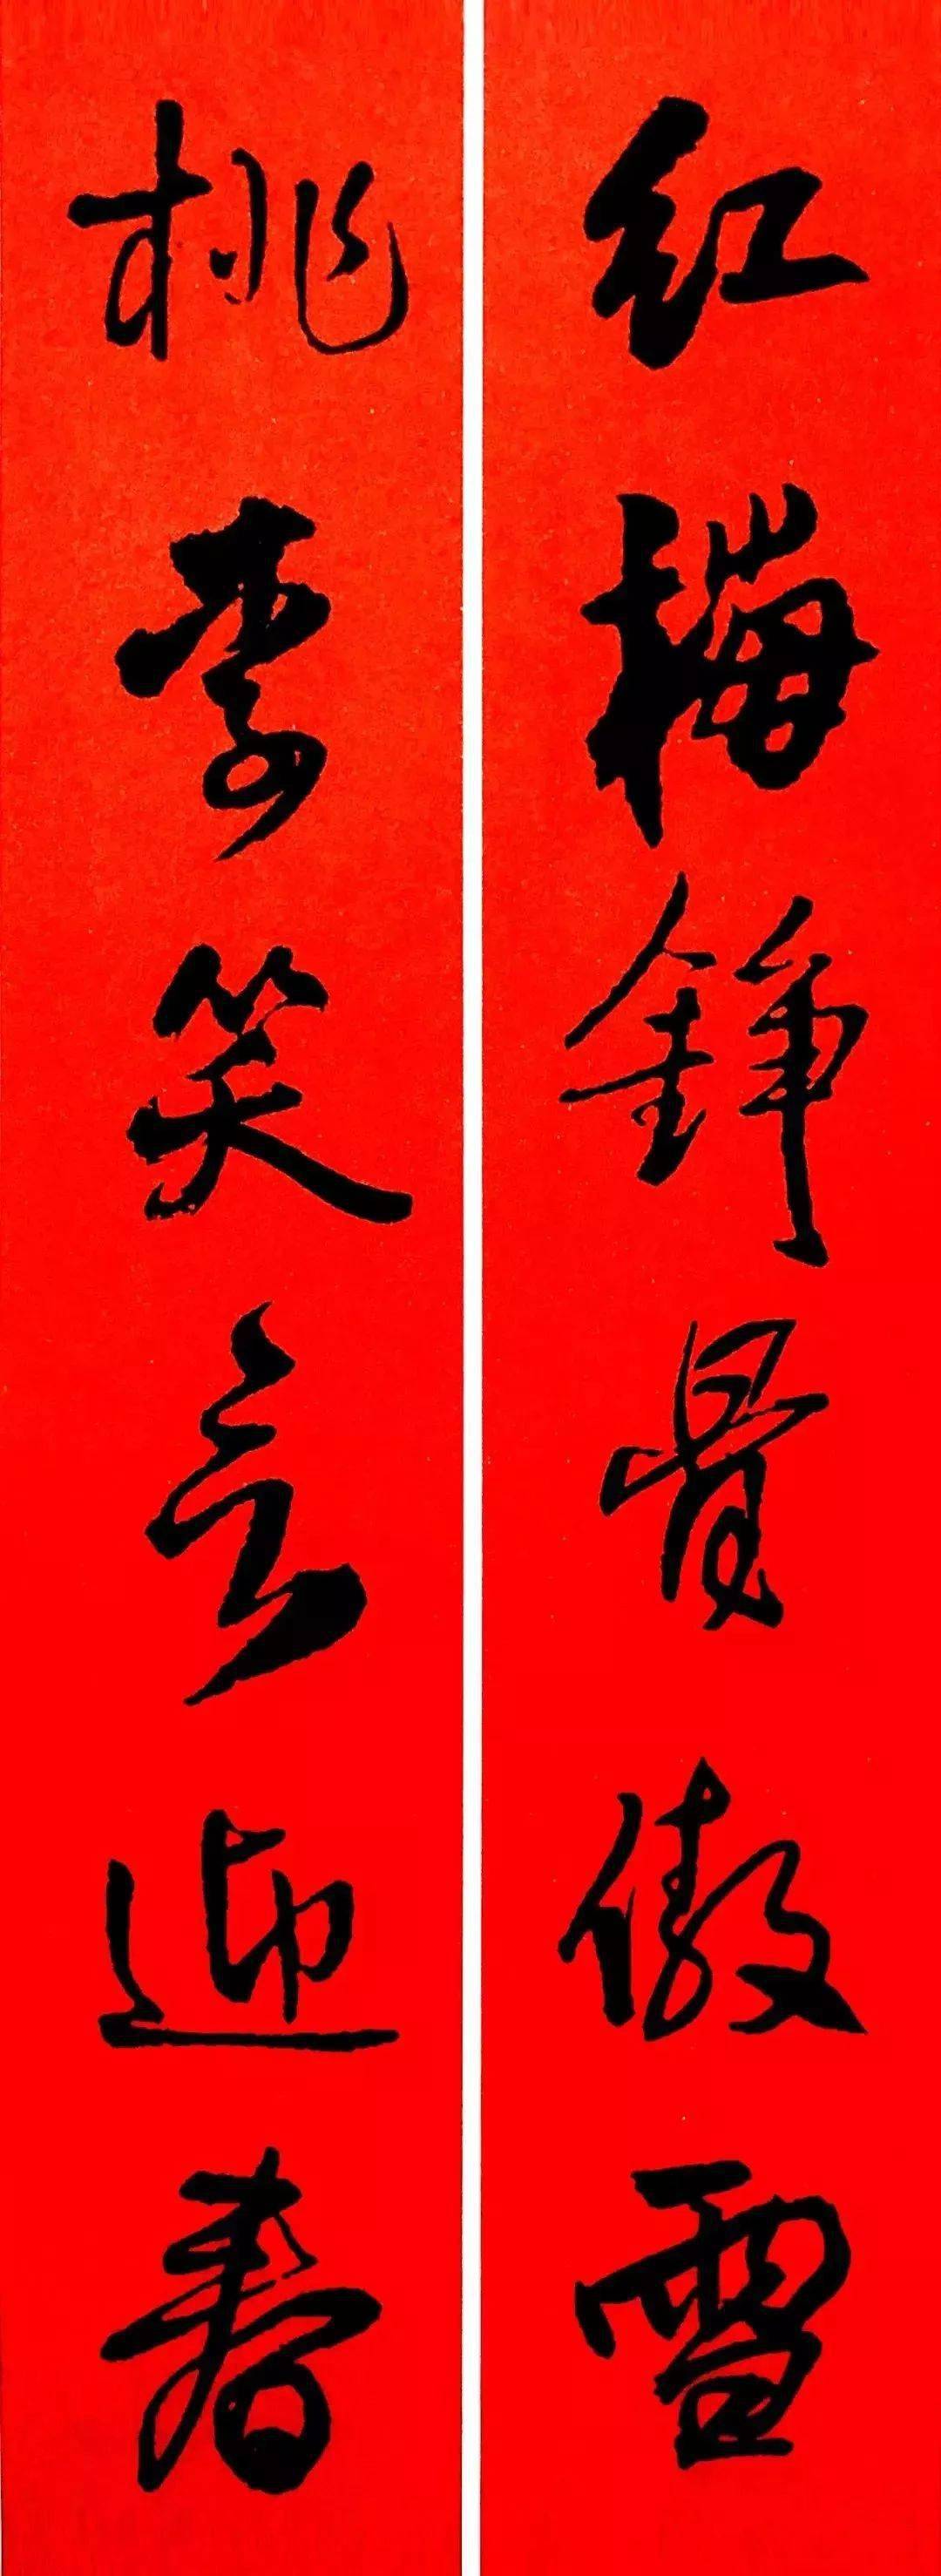 红梅铮骨傲雪
桃李笑言迎春